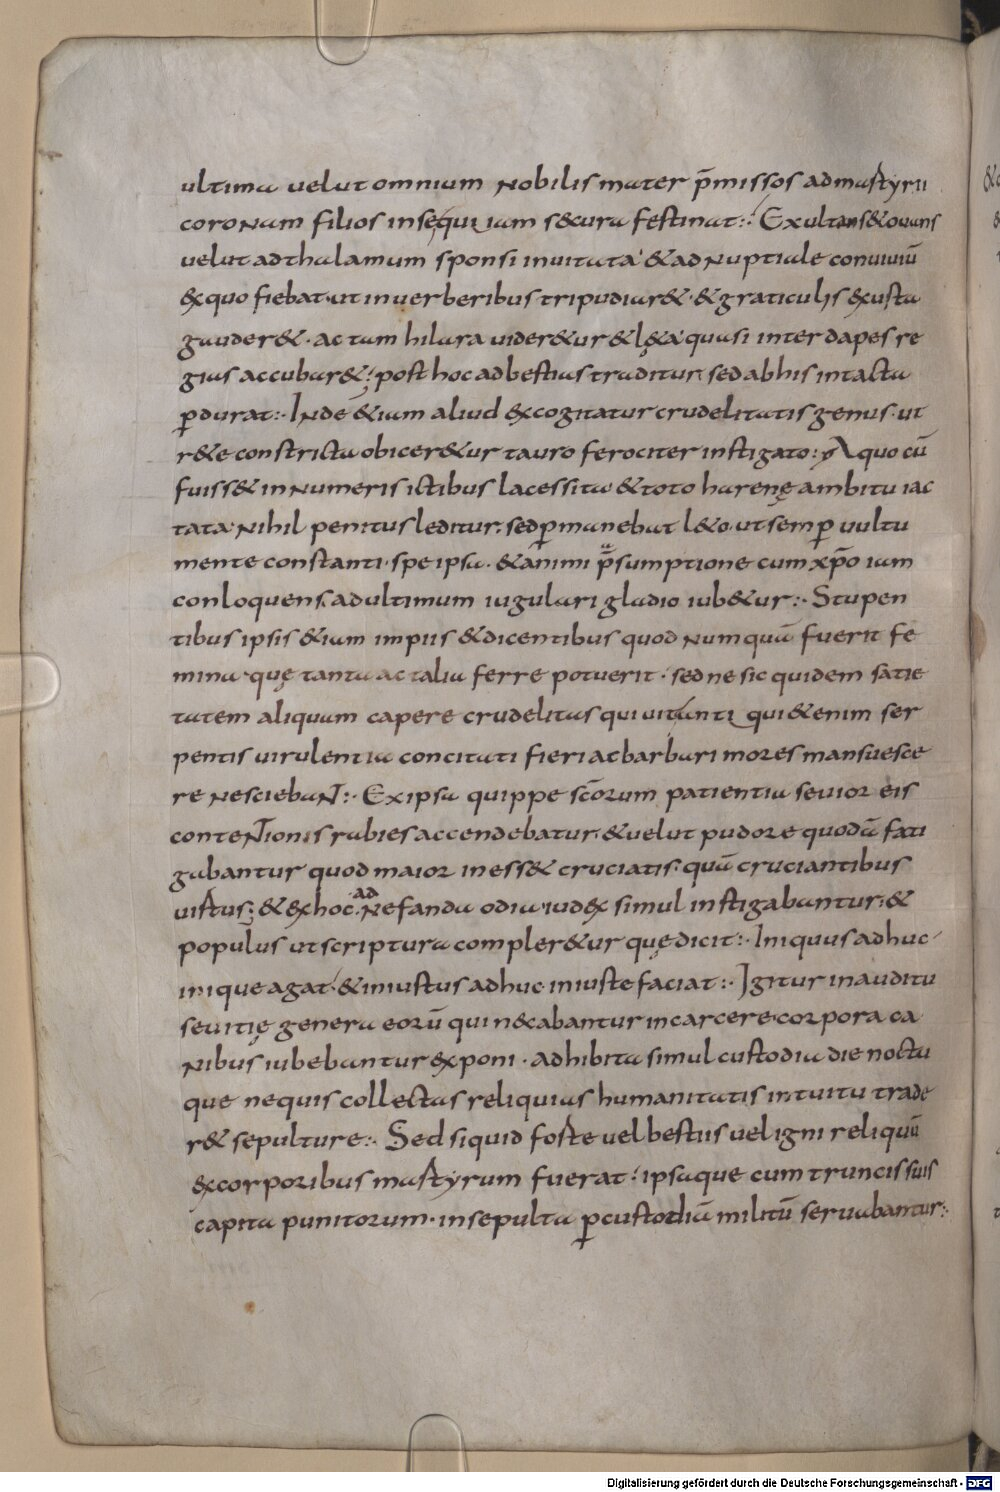 ultima uelut omnium nobilis mater p̄missos ad martyrii
coronam filios insequi iam s&cura festinat:· Exultans & ouans
uelut ad thalamum sponsi inuitata & ad nuptiale conuiuiū
exquo fiebat ut in uerberibus tripudiar& · & graticulis exusta
gauder& · ac tam hilara uider&ur & l&a quasi inter dapes re
gias accubar&; post hoc ad bestias traditur sed ab his intacta
ꝑdurat:· Inde &iam aliud excogitatur crudelitatis genus · ut
r&e constricta obicer&ur tauro ferociter instigato: A quo cū
fuiss& innumeris ictibus lacessita & toto harenę ambitu iac
tata nihil penitus leditur; sed ꝑmanebat l&o ut semꝑ uultu
mente constanti · spe ipsa · & animi p̄sumptione cum xp̄o iam
conloquens ad ultimum iugulari gladio iub&ur:· Stupen
tibus ipsis &iam impiis & dicentibus quod numquā fuerit fe
mina quę tanta ac talia ferre potuerit · sed ne sic quidem satie
tatem aliquam capere crudelitas quiuit anti qui &enim ser
pentis uirulentia concitati fieri ac barbari mores mansuesce
re nesciebant:· Ex ipsa quippe sc̄orum patientia seuior eis
contentionis rabies accendebatur & uelut pudore quodā fati
gabantur quod maior iness& cruciatis quā cruciantibus
uirtus; & exhoc ad nefanda odia iudex simul instigabantur &
populus ut scriptura compler&ur quę dicit:· Iniquus adhuc
inique agat & iniustus adhuc iniuste faciat:· Igitur inaudita
seuitię genera eorū qui necabantur in carcere corpora ca
nibus iubebantur exponi · adhibita simul custodia die noctu
que nequis collectas reliquias humanitatis intuitu trade
r& sepulture:· Sed siquid forte uel bestiis uel igni reliquū
ex corporibus martyrum fuerat · ipsaque cum truncis suis
capita punitorum · insepulta ꝑ custodiā militū seruabantur:·
Digitalisierung gefördert durch die Deutsche Forschungsgemeinschaft - DFG